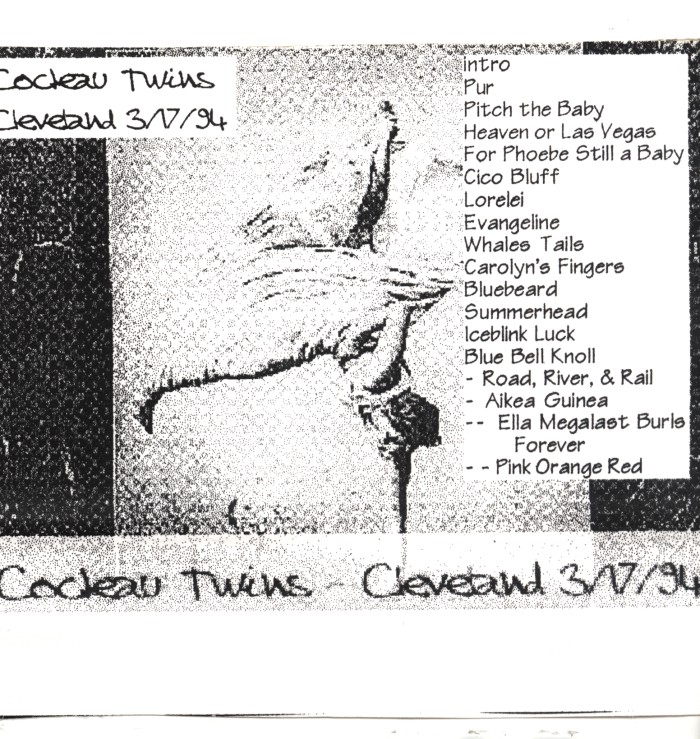 Cocteau Twins
Cleveland 3/17/94
intro
Pur
Pitch the Baby
Heaven or Las Vegas
For Phoebe Still a Baby
Cico Bluff
Lorelei
Evangeline
Whales Tails
Carolyn's Fingers
Bluebeard
Summerhead
Iceblink Luck
Blue Bell Knoll
- Road, River, & Rail
- Aikea Guinea
-- Ella Megalast Burls
Forever
-- Pink Orange Red
Cocteau Twins - Cleveland 3/17/94